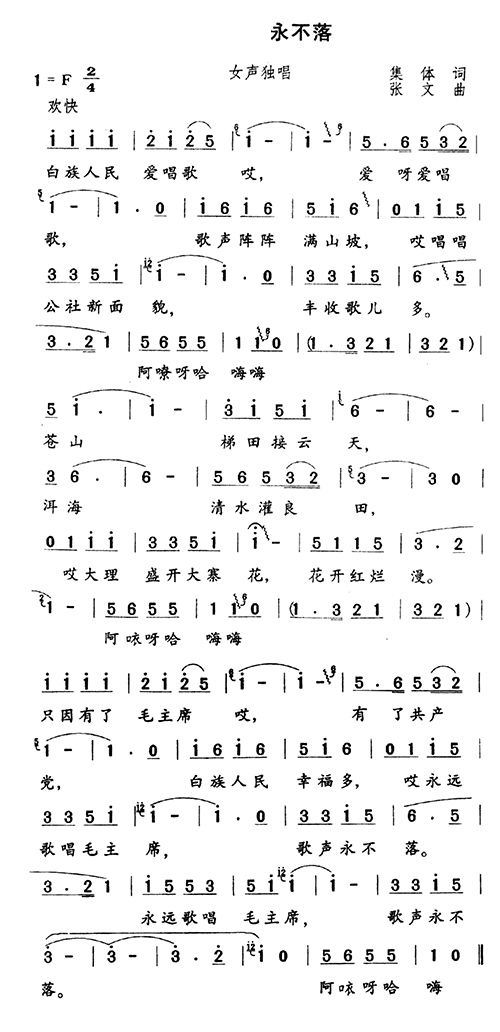 永不落
1 = F 2/4 女声独唱 集体词
张文曲
欢快
i i i i | 2 i 2 5 | i - | i - | 5 . 6 5 3 2 |
白族人民 爱唱歌 哎， 爱 呀爱唱
1 - | 1 . 0 | i 6 i 6 | 5 i 6 | 0 1 i 5 |
歌， 歌声阵阵 满山坡， 哎唱唱
3 3 5 i | i - | i . 0 | 3 3 i 5 | 6 . 5 |
公社新面 貌， 丰收歌儿 多。
3 . 2 1 | 5 6 5 5 | 1 1 0 | (1 . 3 2 1 | 3 2 1) |
阿嘹呀哈 嗨嗨
5 i . | i - | 3 i 5 i | 6 - | 6 - |
苍山 梯田接云 天，
3 6 . | 6 - | 5 6 5 3 2 | 3 - | 3 0 |
洱海 清水灌良 田，
0 1 i i | 3 3 5 i | i - | 5 1 1 5 | 3 . 2 |
哎大理 盛开大寨 花， 花开红烂 漫。
1 - | 5 6 5 5 | 1 1 0 | (1 . 3 2 1 | 3 2 1) |
阿咴呀哈 嗨嗨
i i i i | 2 i 2 5 | i - | i - | 5 . 6 5 3 2 |
只因有了 毛主席 哎， 有 了共产
1 - | 1 . 0 | i 6 i 6 | 5 i 6 | 0 1 i 5 |
党， 白族人民 幸福多， 哎永远
3 3 5 i | i - | i . 0 | 3 3 i 5 | 6 . 5 |
歌唱毛主 席， 歌声永不 落。
3 . 2 1 | i 5 5 3 | 5 i i | i - | 3 3 i 5 |
永远歌唱 毛主席， 歌声永不
3 - | 3 - | 3 . 2 | i 0 | 5 6 5 5 | 1 0 ‖
落。 阿咴呀哈 嗨